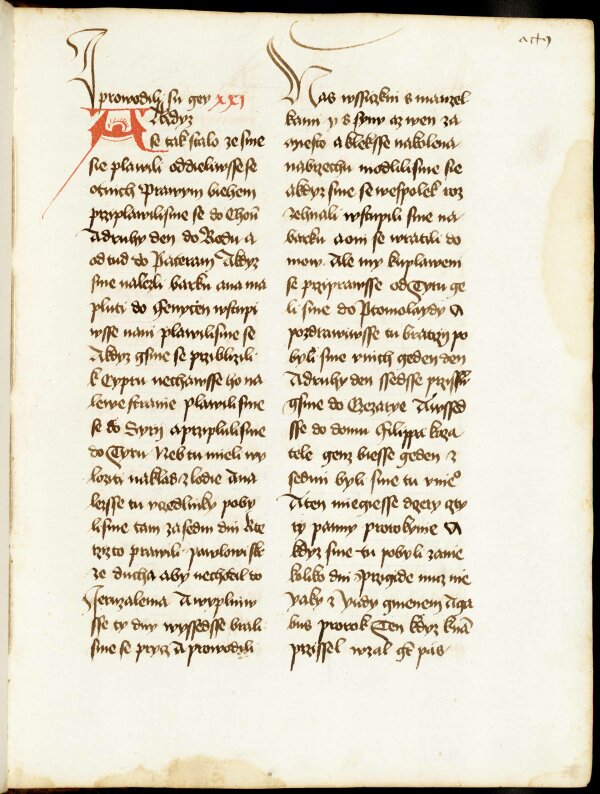 actꝰ
I prowodily su gey XXI
A kdyz
se tak stalo ze sme
sie plawili oddieliwsse se
otnich Prawym biehem
przyplawilisme se do Chou
A druhy den do Rodu a
od tud do Pateram A kdyz
sme nalezli barku ana ma
pluti do Fenycen wstupi
wsse nani plawilisme se
A kdyz gsme se prziblizili
k Cypru nechawsse ho na
lewe stranie plawili sme
se do Syrij a przyplulisme
do Tyru Neb tu mieli wy
loziti naklad z lodie A na
lezsse tu vczedlniky poby
li sme tam za sedm dni kte
rzizto prawili Pawlowi sk
ze ducha aby nechodil do
Jeruzalema A wyplniw
sse ty dny wyssedsse brali
sme se prycz A prowodili
Nas wssiczkni s manzel
kami y s syny az wen za
miesto a kleksse na kolena
na brzehu modlili sme sie
a kdyz sme se wespolek roz
zehnali wstupili sme na
barku a oni se wratili do
mow. Ale my kuplawem
se przyprawsse od Tyru ge
li sme do Ptomolaydy A
pozdrawiwsse tu bratrzy po
byli sme v nich geden den
A druhy den ssedsse przissli
gsme do Cezarye A wssed
sse do domu Filippa kaza
tele genz biesse geden z
sedmi byli sme tu v nieº
A ten miegiesse dcery czty
ry panny prorokynie A
kdyz sme tu pobyli za nie
koliko dni Przigide muz nie
yaky z Yudy gmenem Aga
bus prorok Ten kdyz k nam
przissel wzal gest pas